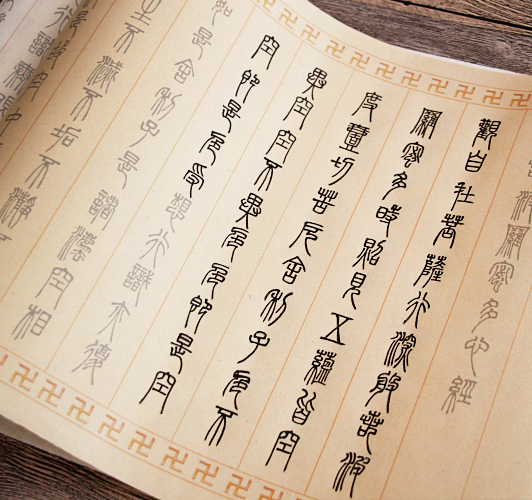 波羅蜜多心經
觀自在菩薩行深般若波
羅蜜多時照見五蘊皆空
度壹切苦厄舍利子色不
異空空不異色色即是空
空即是色受想行識亦復
如是舍利子是諸灋空相
生不滅不垢不淨不